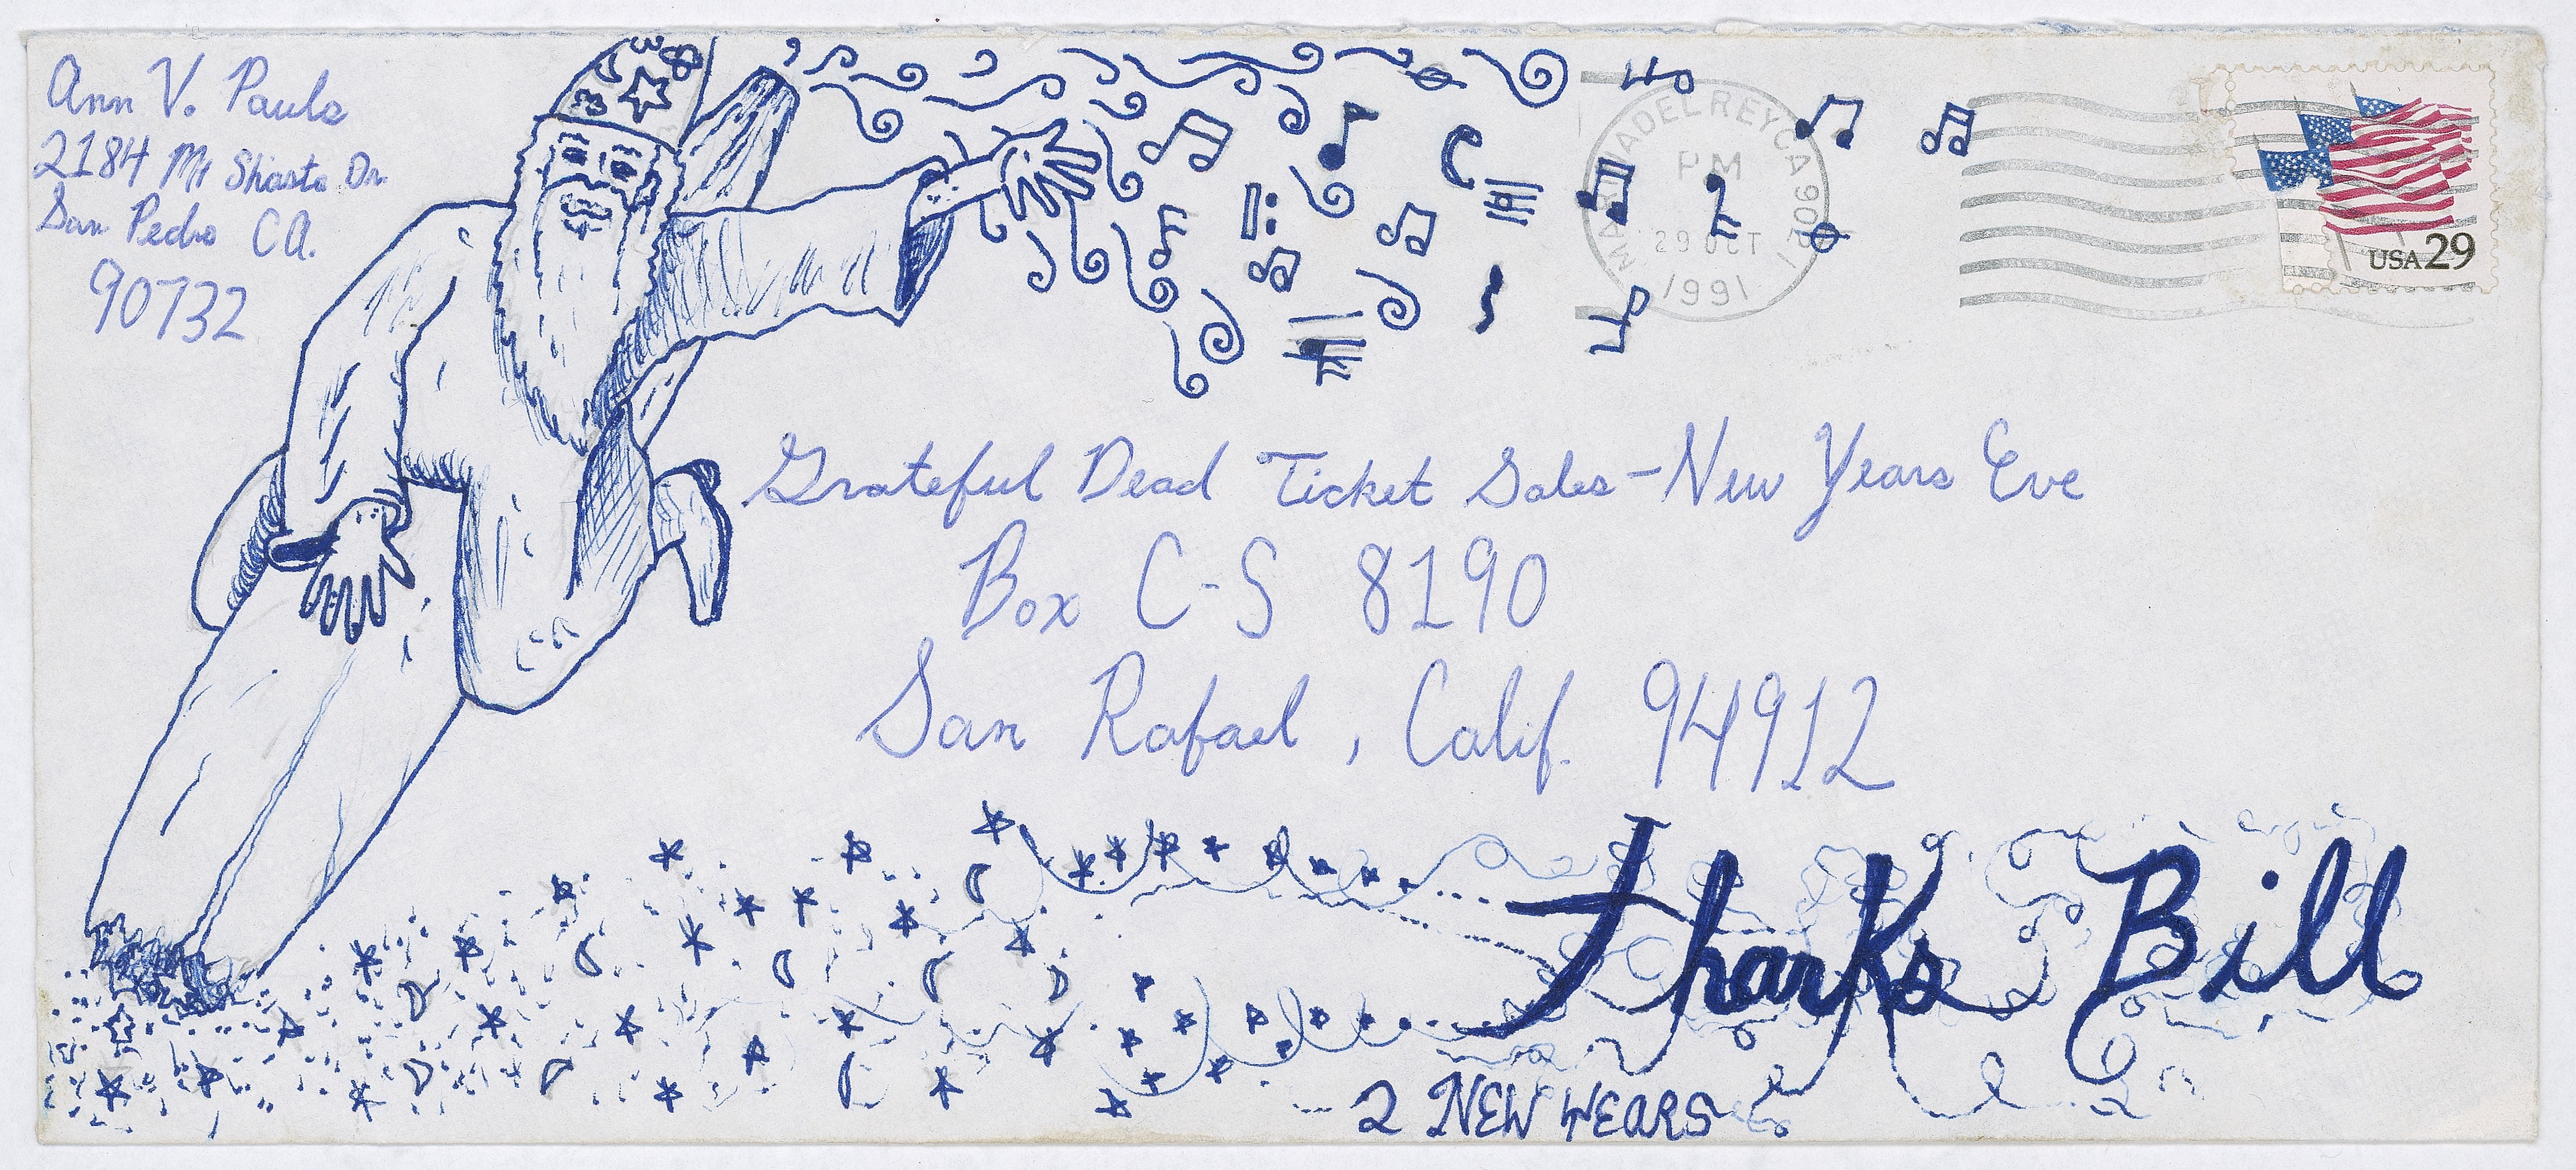 Ann V. Pauls
2184 Mt Shasta Dr.
San Pedro CA.
90732
MARINA DEL REY CA 90291
PM
29 OCT
1991
USA 29
Grateful Dead Ticket Sales - New Years Eve
Box C-S 8190
San Rafael, Calif. 94912
Thanks Bill
2 NEW YEARS